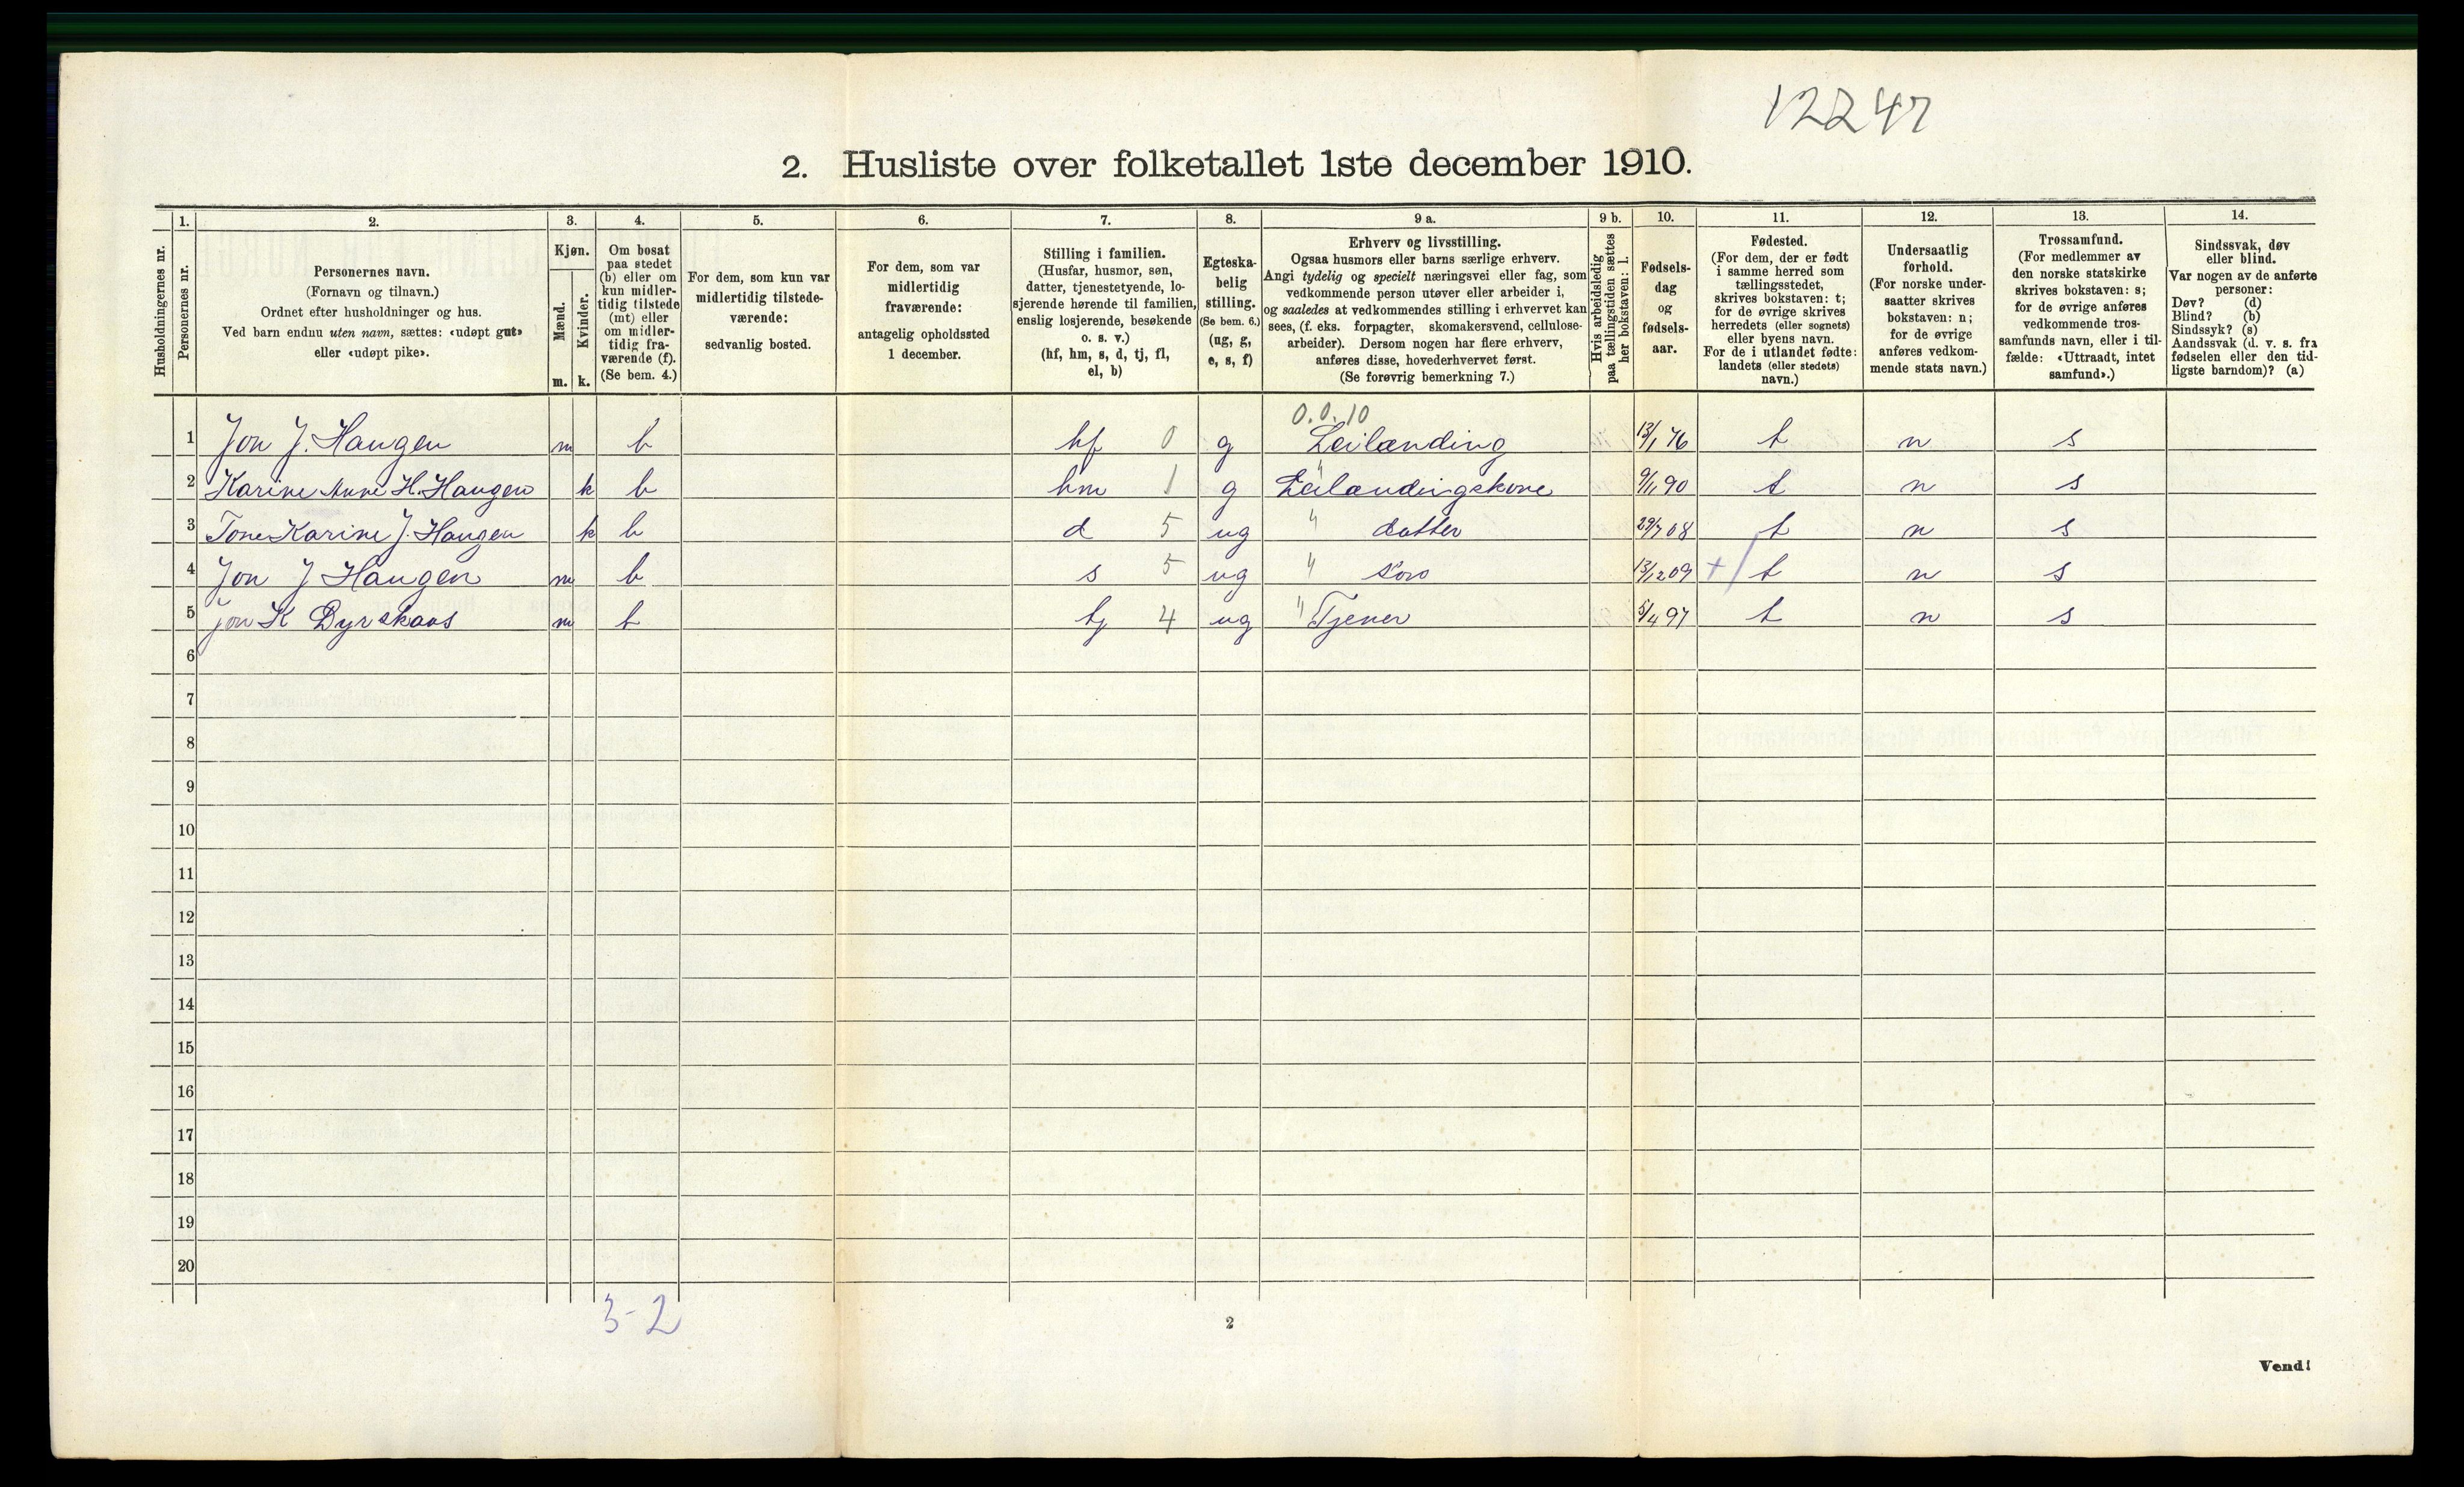 12247
2. Husliste over folketallet 1ste december 1910.
Husholdningernes nr.
1.
Personernes nr.
2.
Personernes navn.
(Fornavn og tilnavn.)
Ordnet efter husholdninger og hus.
Ved barn endnu uten navn, sættes: «udøpt gut»
eller «udøpt pike».
3.
Kjøn.
Mænd.
m.
Kvinder.
k.
4.
Om bosat
paa stedet
(b) eller om
kun midler-
tidig tilstede
(mt) eller
om midler-
tidig fra-
værende (f).
(Se bem. 4.)
5.
For dem, som kun var
midlertidig tilstede-
værende:
sedvanlig bosted.
6.
For dem, som var
midlertidig
fraværende:
antagelig opholdssted
1 december.
7.
Stilling i familien.
(Husfar, husmor, søn,
datter, tjenestetyende, lo-
sjerende hørende til familien,
enslig losjerende, besøkende
o. s. v.)
(hf, hm, s, d, tj, fl,
el, b)
8.
Egteska-
belig
stilling.
(Se bem. 6.)
(ug, g,
e, s, f)
9 a.
Erhverv og livsstilling.
Ogsaa husmors eller barns særlige erhverv.
Angi tydelig og specielt næringsvei eller fag, som
vedkommende person utøver eller arbeider i,
og saaledes at vedkommendes stilling i erhvervet kan
sees, (f. eks. forpagter, skomakersvend, cellulose-
arbeider). Dersom nogen har flere erhverv,
anføres disse, hovederhvervet først.
(Se forøvrig bemerkning 7.)
9 b.
Hvis arbeidsledig
paa tællingstiden sættes
her bokstaven: l.
10.
Fødsels-
dag
og
fødsels-
aar.
11.
Fødested.
(For dem, der er født
i samme herred som
tællingsstedet,
skrives bokstaven: t;
for de øvrige skrives
herredets (eller sognets)
eller byens navn.
For de i utlandet fødte:
landets (eller stedets)
navn.)
12.
Undersaatlig
forhold.
(For norske under-
saatter skrives
bokstaven: n;
for de øvrige
anføres vedkom-
mende stats navn.)
13.
Trossamfund.
(For medlemmer av
den norske statskirke
skrives bokstaven: s;
for de øvrige anføres
vedkommende tros-
samfunds navn, eller i til-
fælde: «Uttraadt, intet
samfund».)
14.
Sindssvak, døv
eller blind.
Var nogen av de anførte
personer:
Døv? (d)
Blind? (b)
Sindssyk? (s)
Aandssvak (d. v. s. fra
fødselen eller den tid-
ligste barndom)? (a)
0.0.10
1 Jon J. Haugen m b hf 0 g Leilænding 13/1 76 t n s
2 Karine Anne H. Haugen k b hm 1 g " Leilændingskone 9/11 90 t n s
3 Tone Karine J. Haugen k b d 5 ug " datter 29/7 08 t n s
4 Jon J Haugen m b s 5 ug " søn 13/12 09 + t n s
5 Jon K Dyrskaas m b tj 4 ug " Tjener 5/4 97 t n s
6
7
8
9
10
11
12
13
14
15
16
17
18
19
20
3-2
2
Vend!